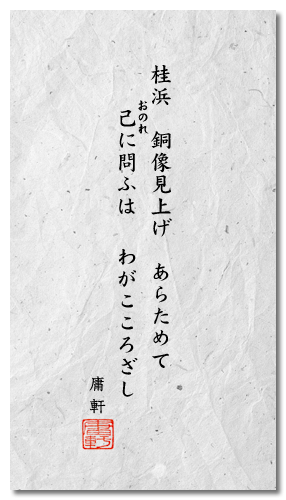 桂浜　銅像見上げ　あらためて
己に問ふは　わがこころざし
おのれ
庸軒
庸軒